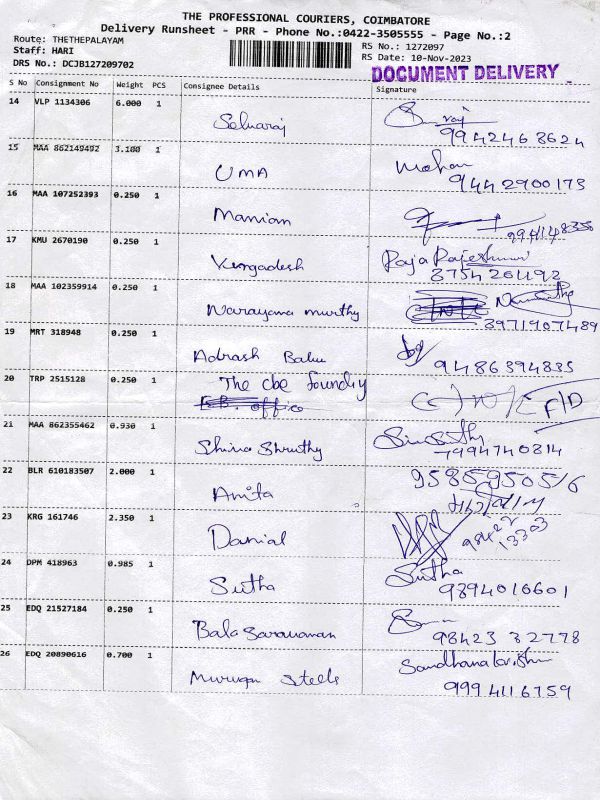 THE PROFESSIONAL COURIERS, COIMBATORE
Delivery Runsheet - PRR - Phone No.:0422-3505555 - Page No.:2
Route: THETHEPALAYAM
Staff: HARI
RS No.: 1272097
DRS No.: DCJB127209702
RS Date: 10-Nov-2023
DOCUMENT DELIVERY
S No Consignment No Weight PCS Consignee Details Signature
14 VLP 1134306 6.000 1 Selvaraj
9942468624
15 MAA 862149492 3.100 1 UMA Mohan
9442900173
16 MAA 107252393 0.250 1 Manian
17 KMU 2670190 0.250 1 Vengadesh Raja Rajeshwari
8754261192
18 MAA 102359914 0.250 1 Narayana murthy
8971907489
19 MRT 318948 0.250 1 Adrash Babu
9486394835
20 TRP 2515128 0.250 1 The cbe foundry
office F/D
21 MAA 862355462 0.930 1 Shiva Shruthy
7994740814
22 BLR 610183507 2.000 1 Anita 9585950516
23 KRG 161746 2.350 1 Danial
24 DPM 418963 0.985 1 Sutha Sutha
9894016601
25 EDQ 21527184 0.250 1 Bala Saravanan
98423 32778
26 EDQ 20890616 0.700 1 Murugan Steels
9994116759